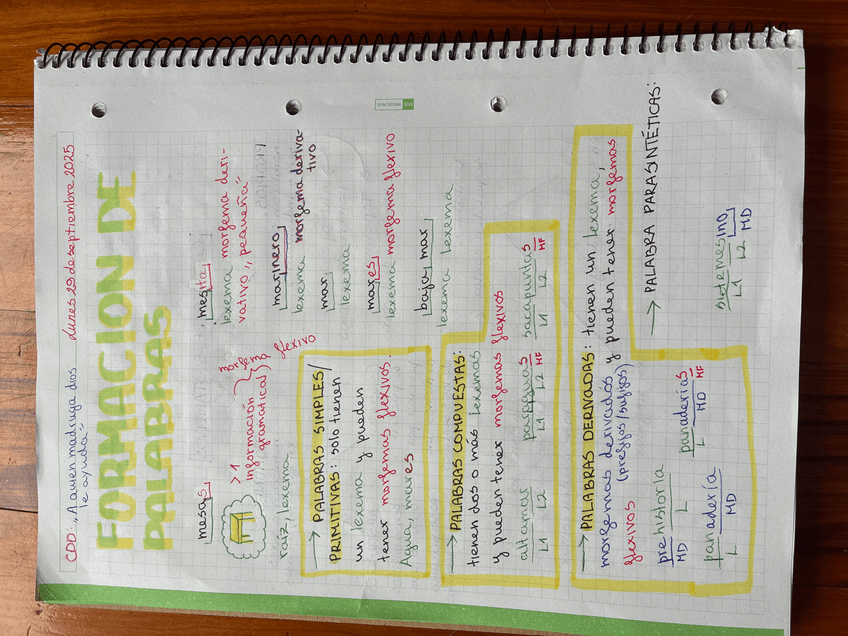 CDD: "A quien madruga dios le ayuda"
Lunes 29 de septiembre 2025
FORMACION DE
PALABRAS
mesas
> 1
información
gramatical
morfema
flexivo
raíz, lexema
mesita
lexema morfema deri-
vativo "pequeña"
marinero
lexema morfema deriva-
tivo
mar
lexema
mares
lexema morfema flexivo
bajamar
lexema lexema
→ PALABRAS SIMPLES/
PRIMITIVAS: solo tienen
un lexema y pueden
tener morfemas flexivos.
Agua, mares
→ PALABRAS COMPUESTAS:
tienen dos o más lexemas
y pueden tener morfemas flexivos
altamar paraguas sacapuntas
L1 L2 L1 L2 MF L1 L2 MF
→ PALABRAS DERIVADAS: tienen un lexema,
morfemas derivados y pueden tener morfemas
flexivos (prefijos/sufijos)
prehistoria panaderías
MD L L MD MF
panadería
L MD
→ PALABRA PARASINTÉTICAS:
sietemesino
L1 L2 MD